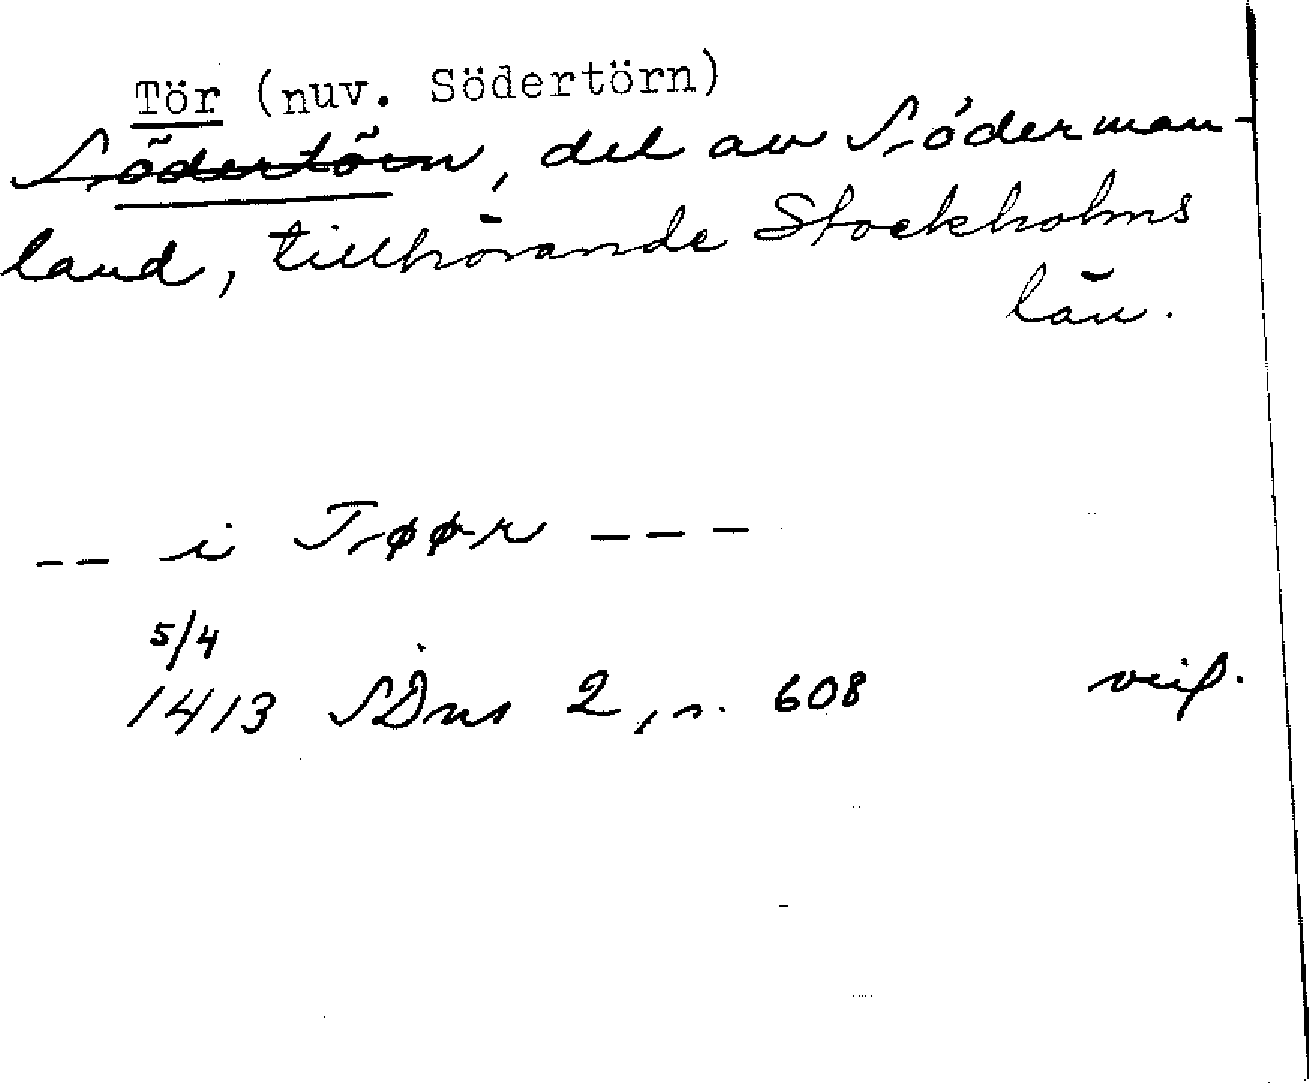 Tör (nuv. Södertörn)
Södertörn, del av Söderman-
land, tillhörande Stockholms
län.
-- i Tøør ---
5/4
1413 SDns 2, s. 608